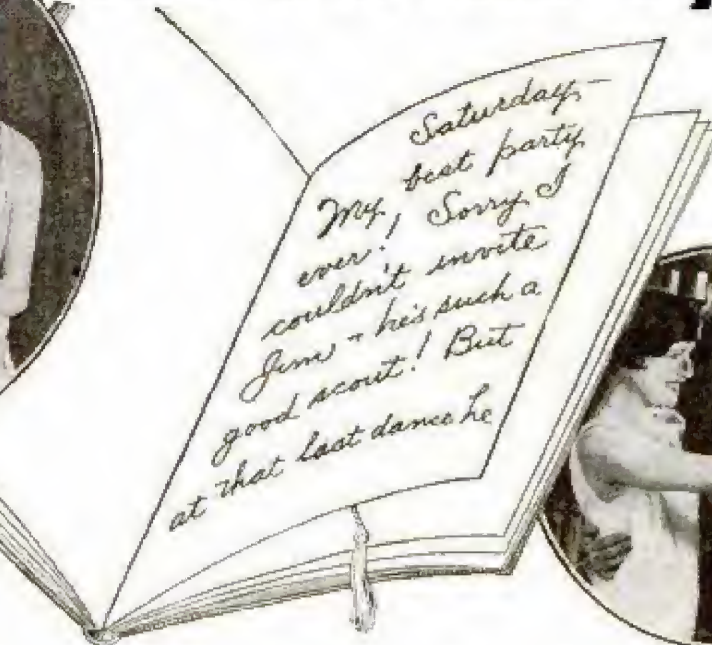 Saturday—
My best party
ever! Sorry I
couldn't invite
Jim - he's such a
good scout! But
at that last dance he